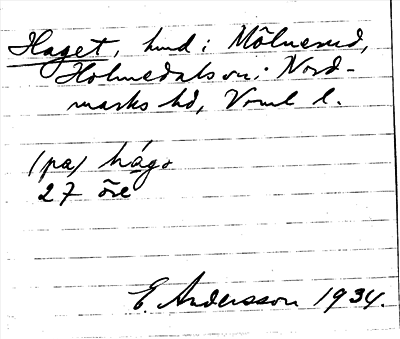 Haget, hmd i Mölnerud,
Holmedals sn; Nord-
marks hd, Vrml l.
(pa) hágə
27 öre
E. Andersson 1934.